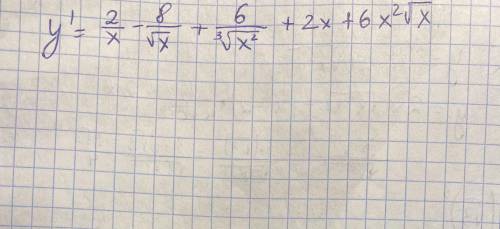 y' = 2/x - 8/√x + 6/∛x² + 2x + 6x²√x